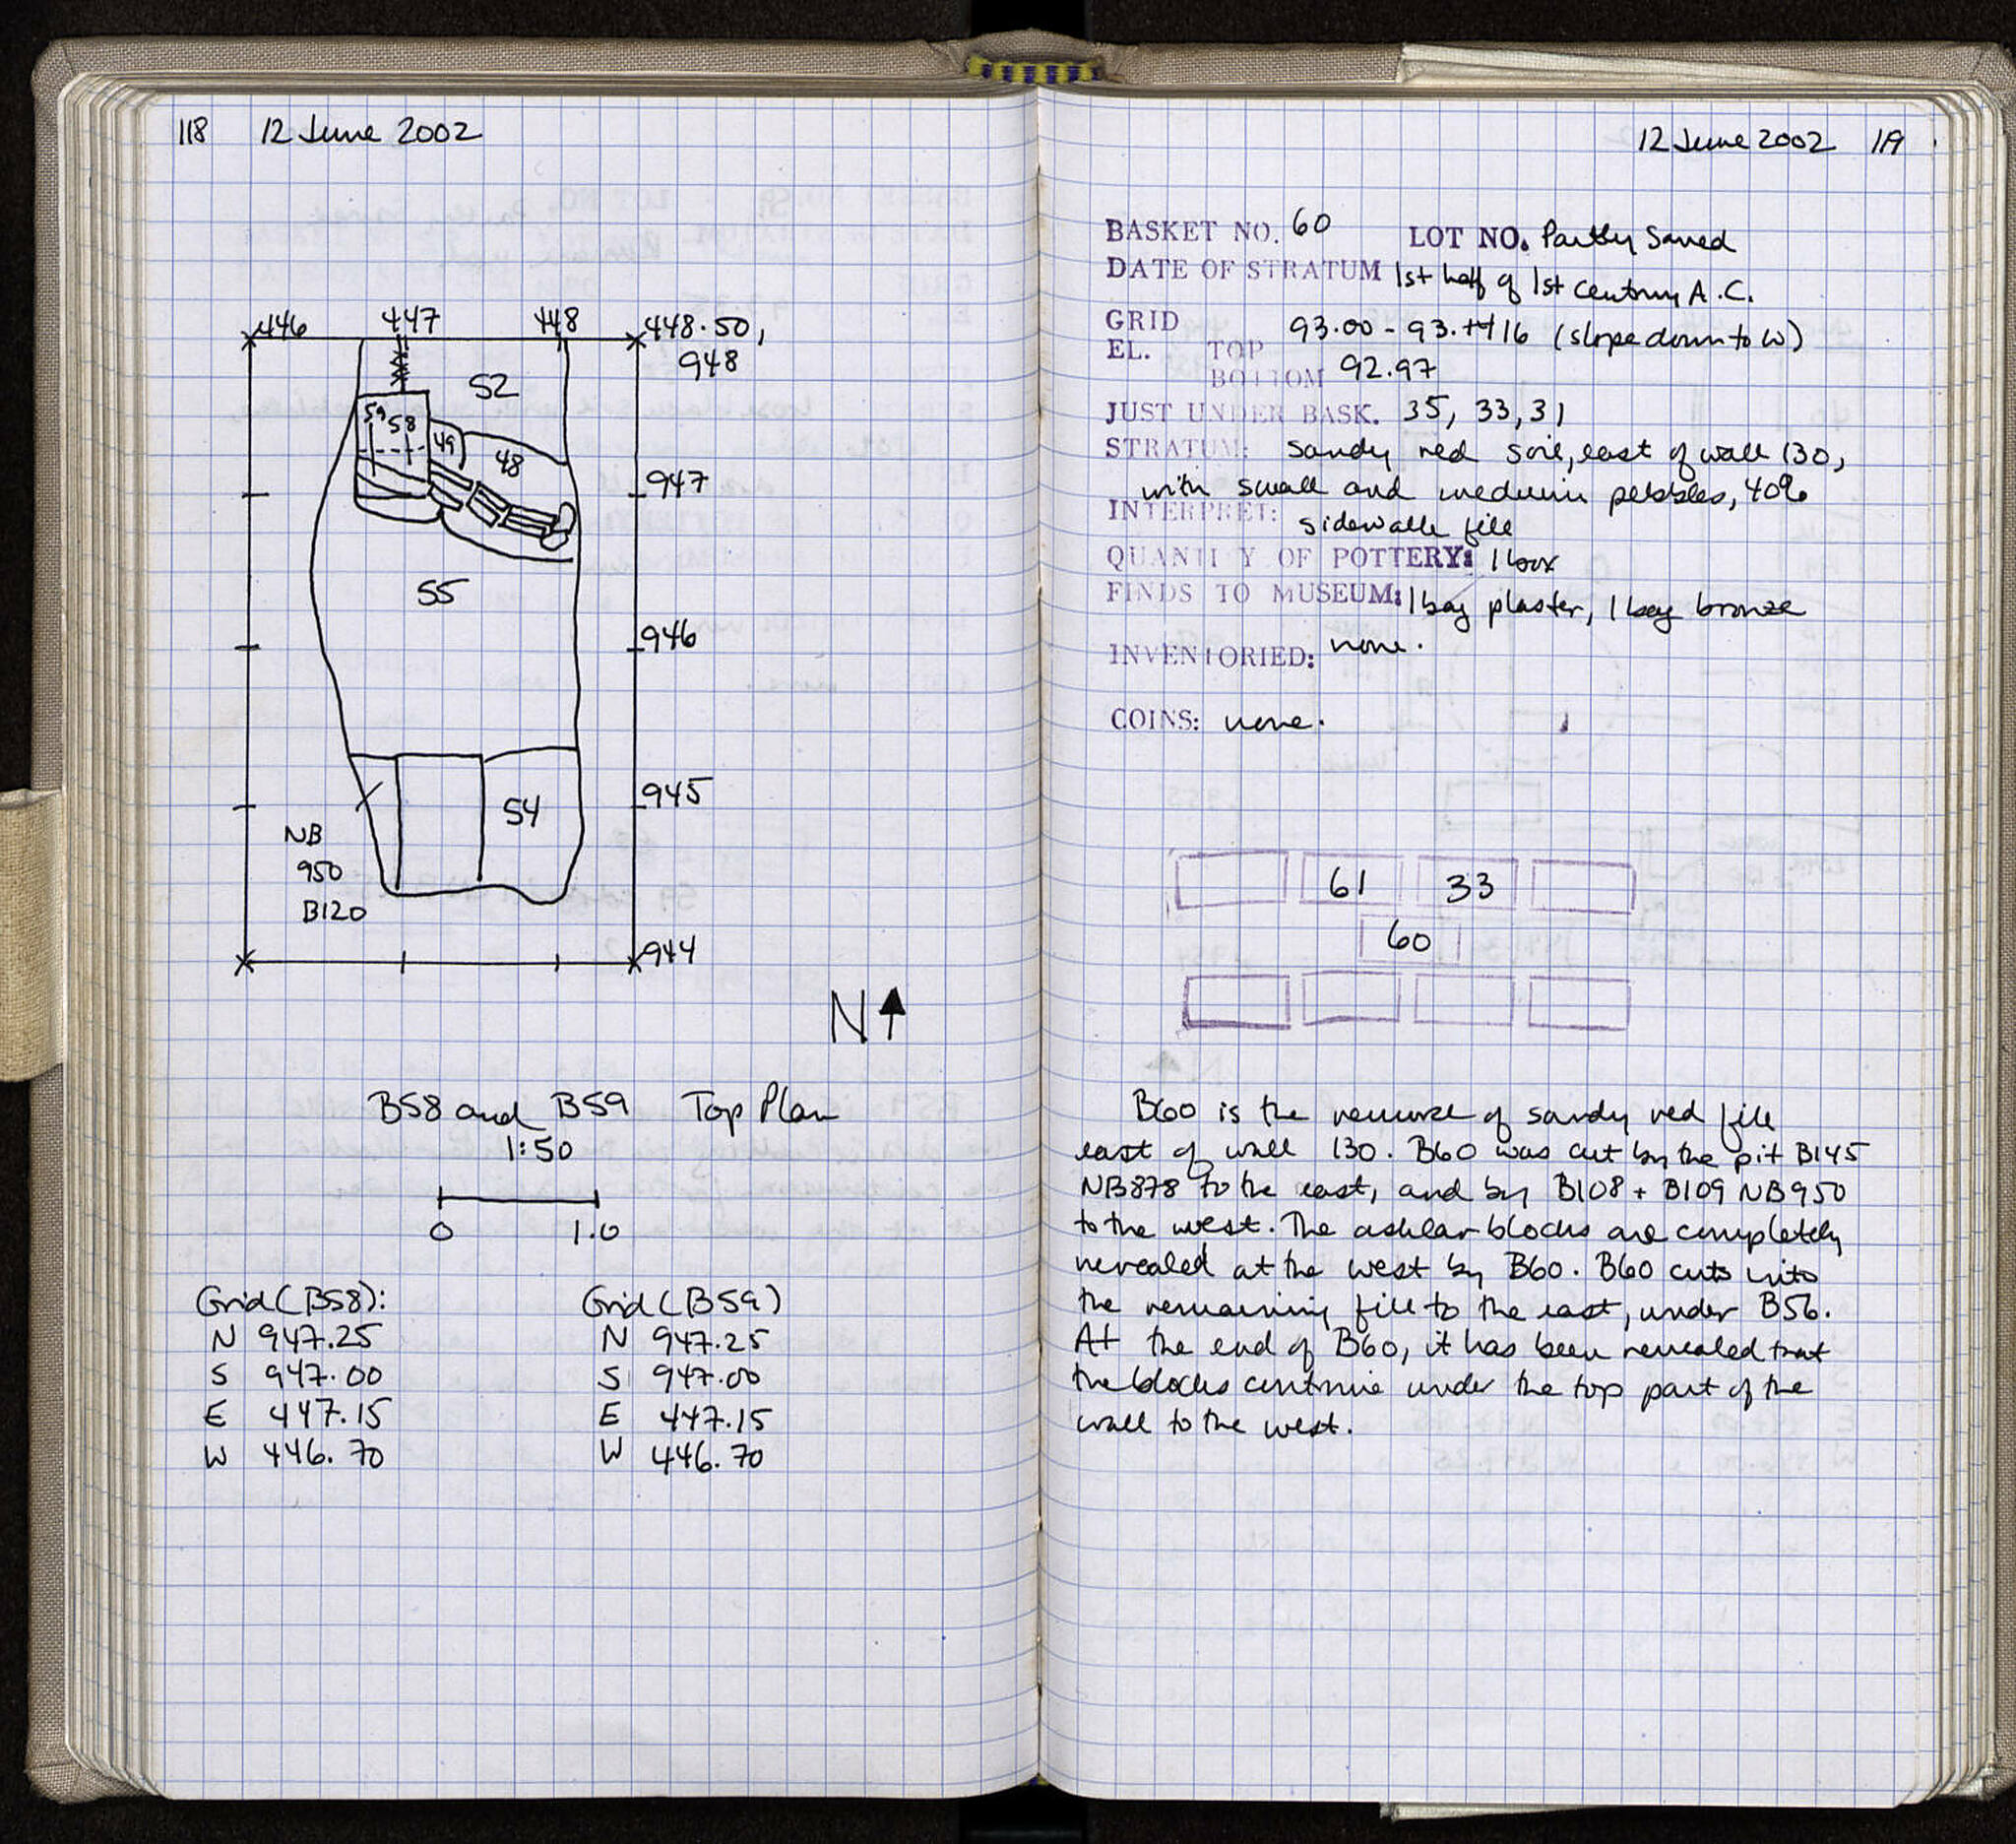 118 12 June 2002
446 447 448 448.50,
948
52
59 58
49
48
947
55
946
945
54
NB
950
B120
944
N
B58 and B59 Top Plan
1:50
0 1.0
Grid (B58):
N 947.25
S 947.00
E 447.15
W 446.70
Grid (B59)
N 947.25
S 947.00
E 447.15
W 446.70
12 June 2002 119
BASKET NO. 60 LOT NO. Partly Saved
DATE OF STRATUM 1st half of 1st century A.C.
GRID
EL. TOP 93.00 - 93.16 (slope down to W)
BOTTOM 92.97
JUST UNDER BASK. 35, 33, 31
STRATUM: sandy red soil, east of wall 130,
with small and medium pebbles, 40%
INTERPRET: sidewalk fill
QUANTITY OF POTTERY: 1 box
FINDS TO MUSEUM: 1 bag plaster, 1 bag bronze
INVENTORIED: none.
COINS: none.
61 33
60
B60 is the removal of sandy red fill
east of wall 130. B60 was cut by the pit B145
NB878 to the east, and by B108 + B109 NB950
to the west. The ashlar blocks are completely
revealed at the west by B60. B60 cuts into
the remaining fill to the east, under B56.
At the end of B60, it has been revealed that
the blocks continue under the top part of the
wall to the west.